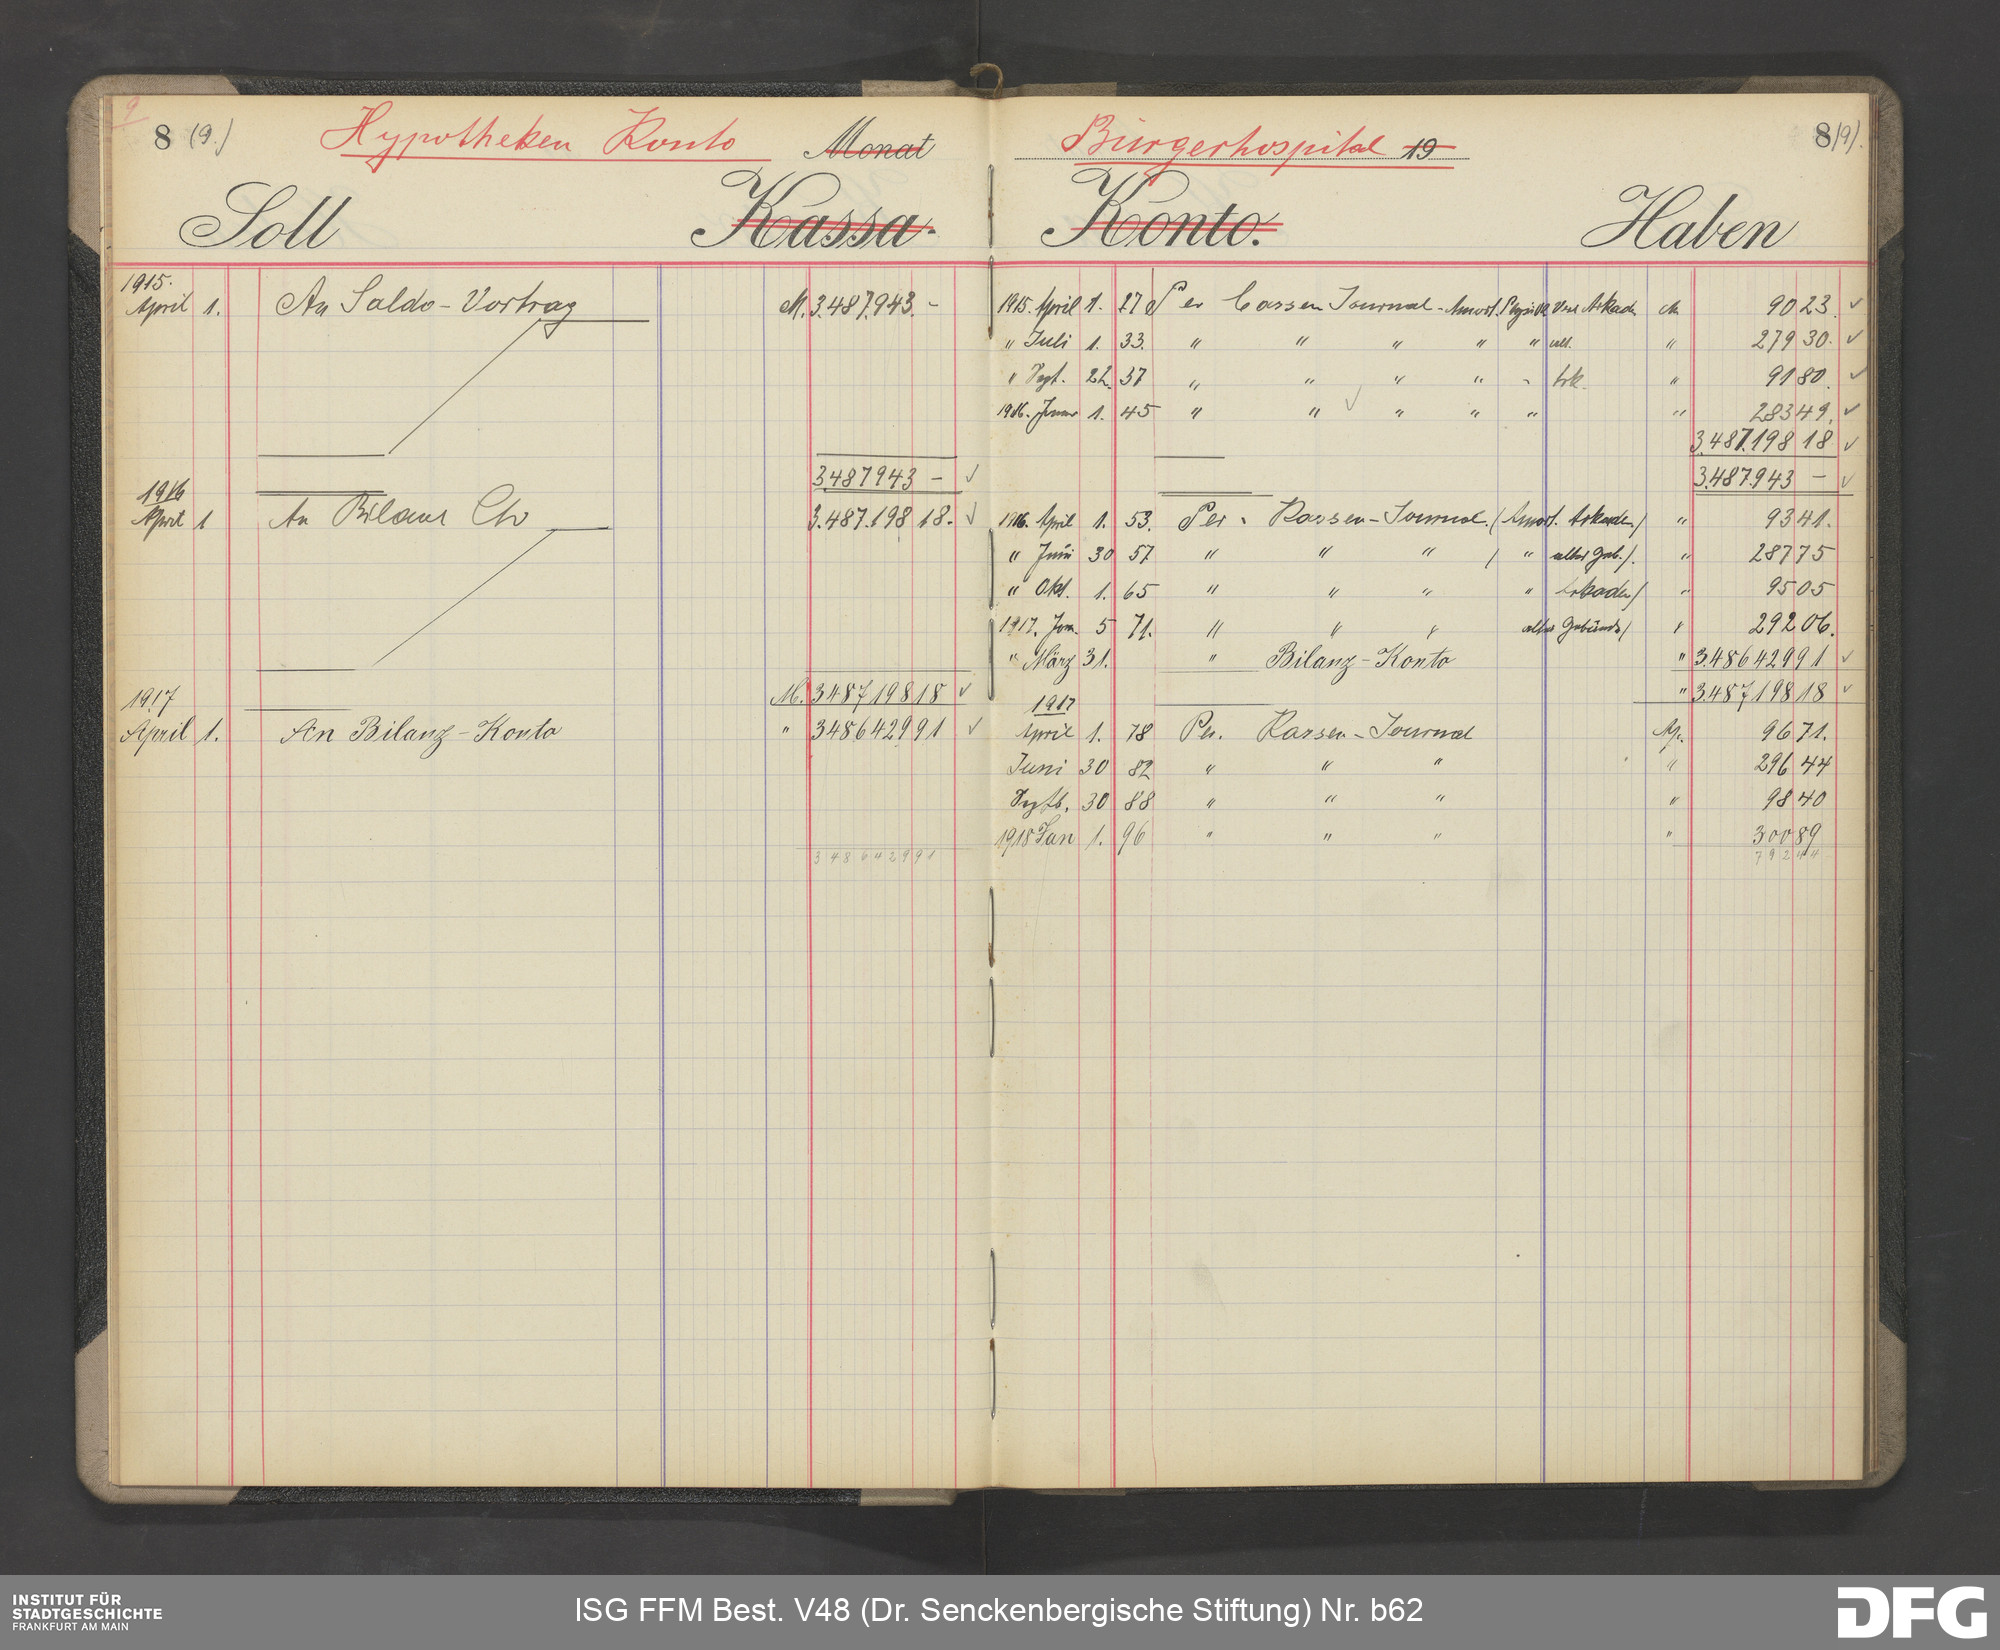 9
8 (9.) Hypotheken Konto Monat
Soll Kassa.
1915.
April 1. An Saldo-Vortrag M. 3.487.943. -
3487943 -
1916
April 1 An Bilanz Cto 3.487.198 18.
M. 3487198 18
1917
April 1. An Bilanz-Konto " 3486429 91
3486429 91
Bürgerhospital 19 8 (9).
Konto. Haben
1915. April 1. 27 Per Cassen Journal - Amort. Arkaden M 90 23.
" Juli 1. 33. " " " " " alt. " 279 30.
" Sept. 22. 37 " " " " " Ark. " 91 80.
1916. Januar 1. 45 " " " " " " 283 49.
3.487.198 18
3.487.943 -
1916. April 1. 53. Per Kassen-Journal. (Amort. Arkaden) " 93 41.
" Juni 30 57 " " " ( " altes Geb.). " 287 75
" Okt. 1. 65 " " " " Arkaden) " 95 05
1917. Jan. 5 71. " " " altes Gebäude) " 292 06.
" März 31. " Bilanz-Konto " 3.486429 91
" 3.487198 18
1917
April 1. 78 Per. Kassen-Journal M. 96 71.
Juni 30 82 " " " " 296 44
Septb. 30 88 " " " " 98 40
1918 Jan 1. 96 " " " " 300 89
792 44
INSTITUT FÜR
STADTGESCHICHTE
FRANKFURT AM MAIN
ISG FFM Best. V48 (Dr. Senckenbergische Stiftung) Nr. b62
DFG